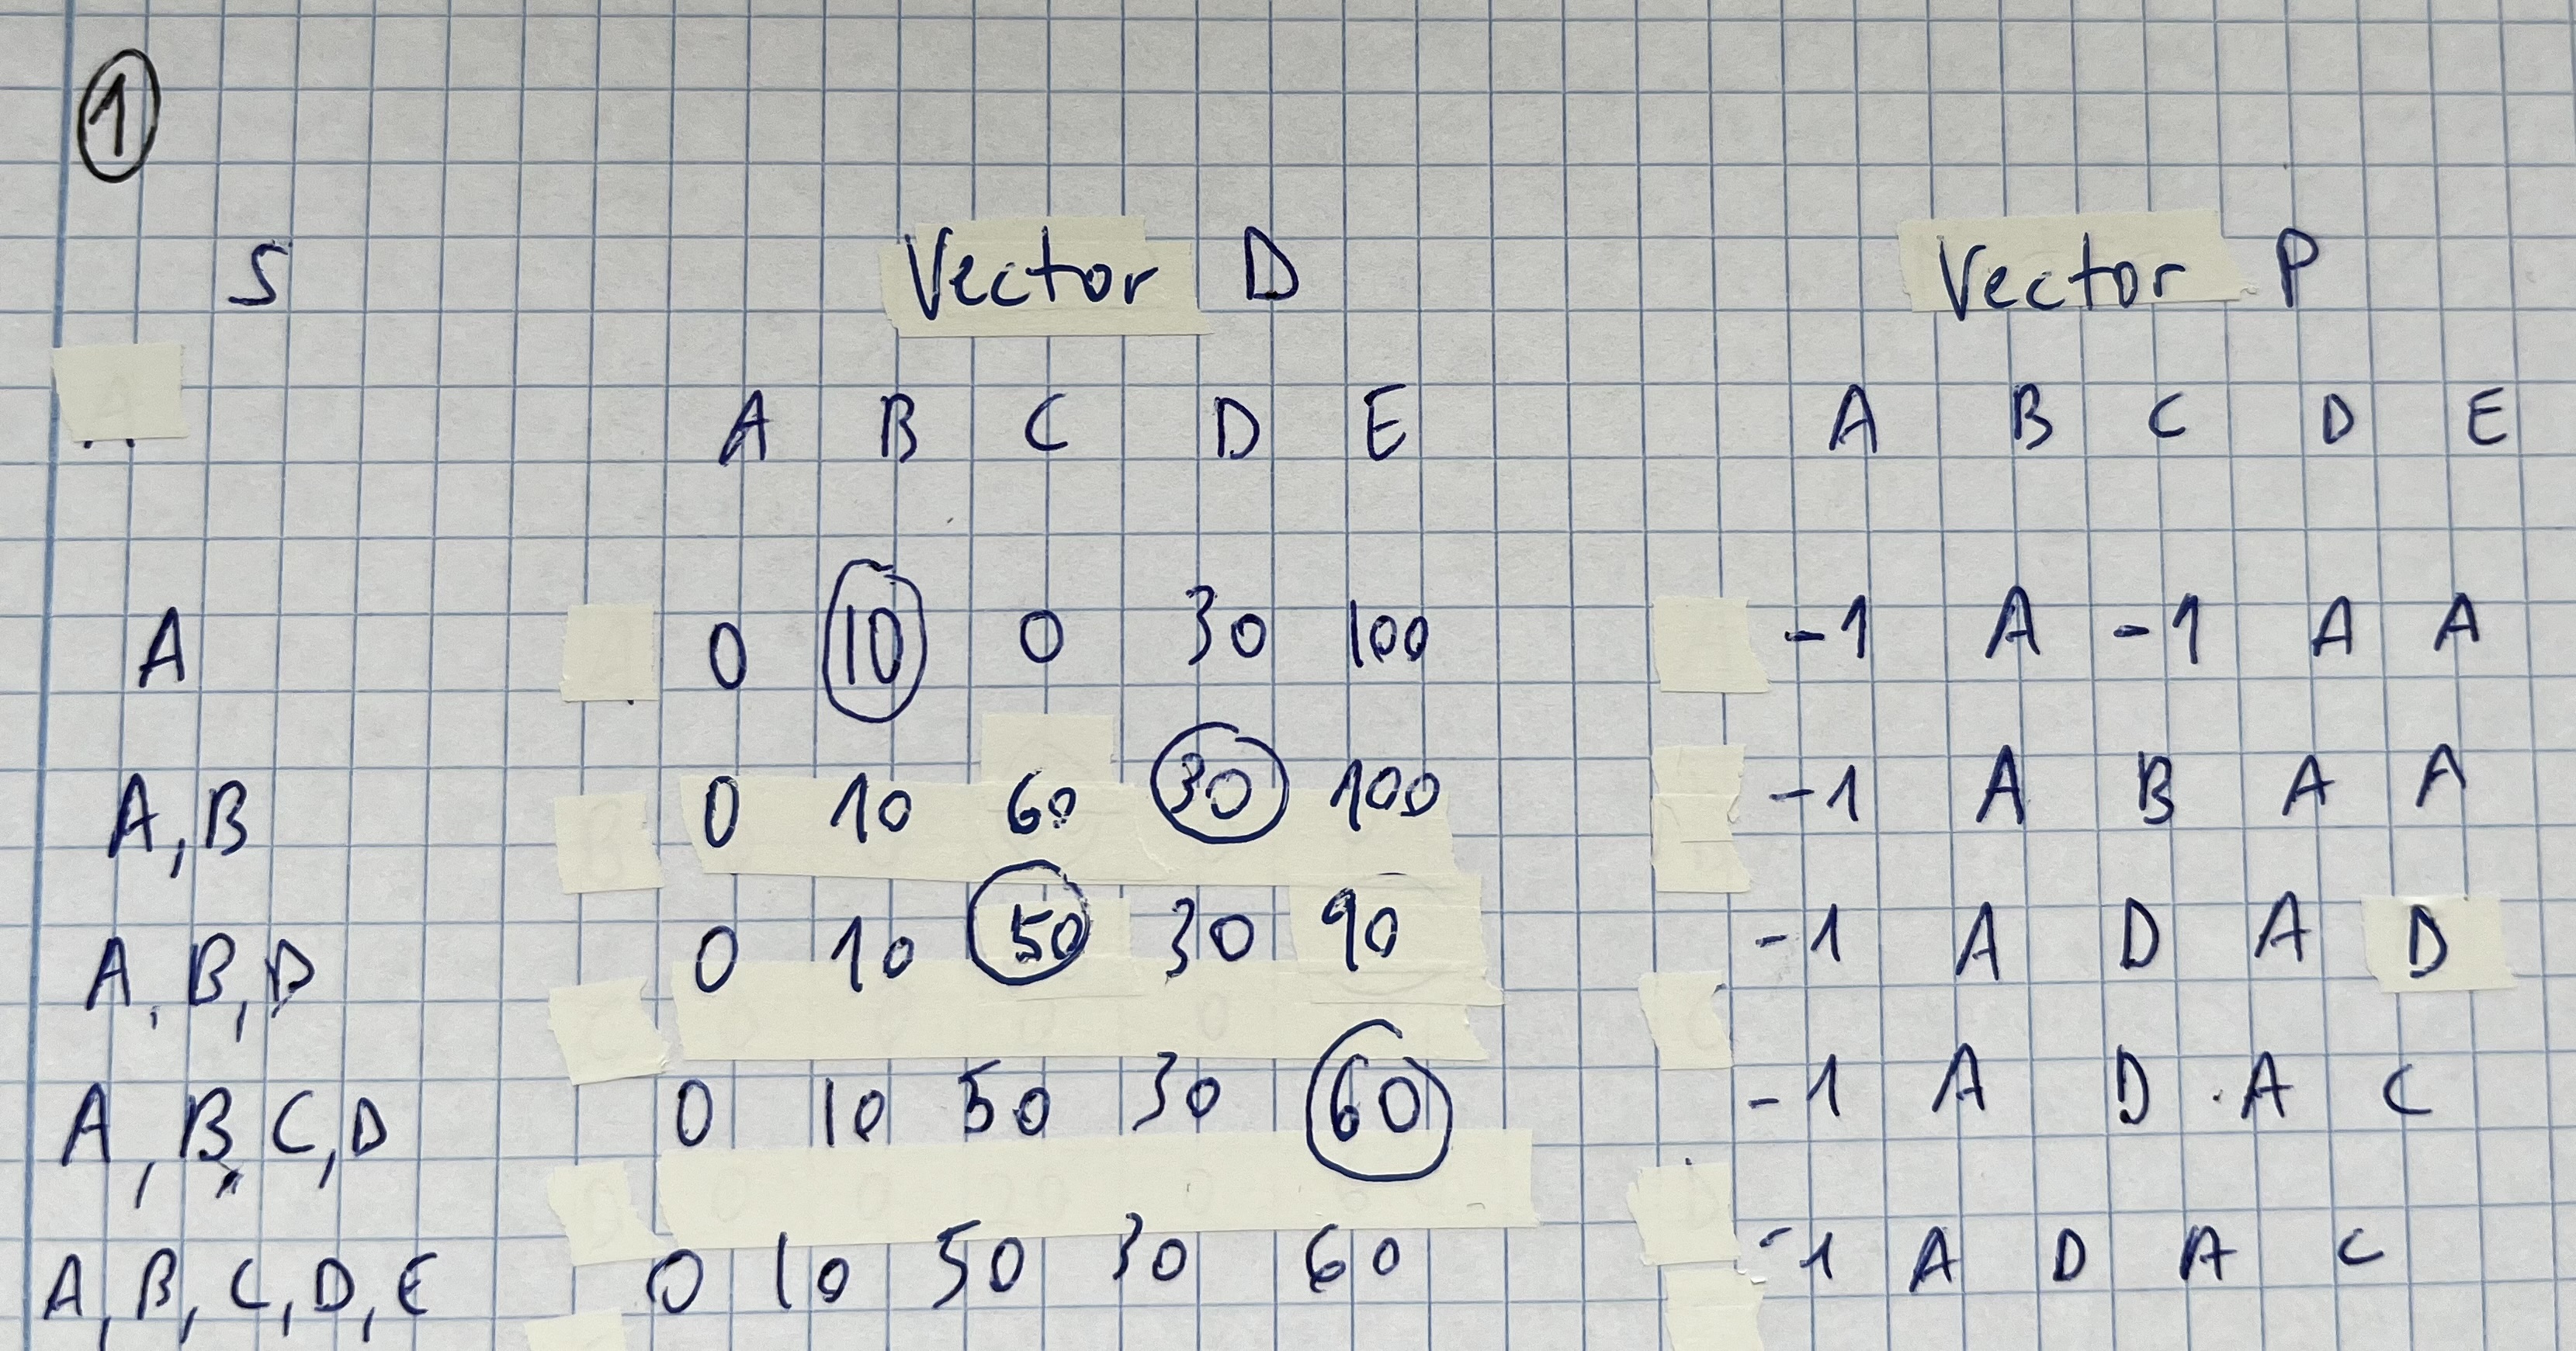 1
S Vector D Vector P
A B C D E A B C D E
A 0 10 0 30 100 -1 A -1 A A
A, B 0 10 60 30 100 -1 A B A A
A, B, D 0 10 50 30 90 -1 A D A D
A, B, C, D 0 10 50 30 60 -1 A D A C
A, B, C, D, E 0 10 50 30 60 -1 A D A C